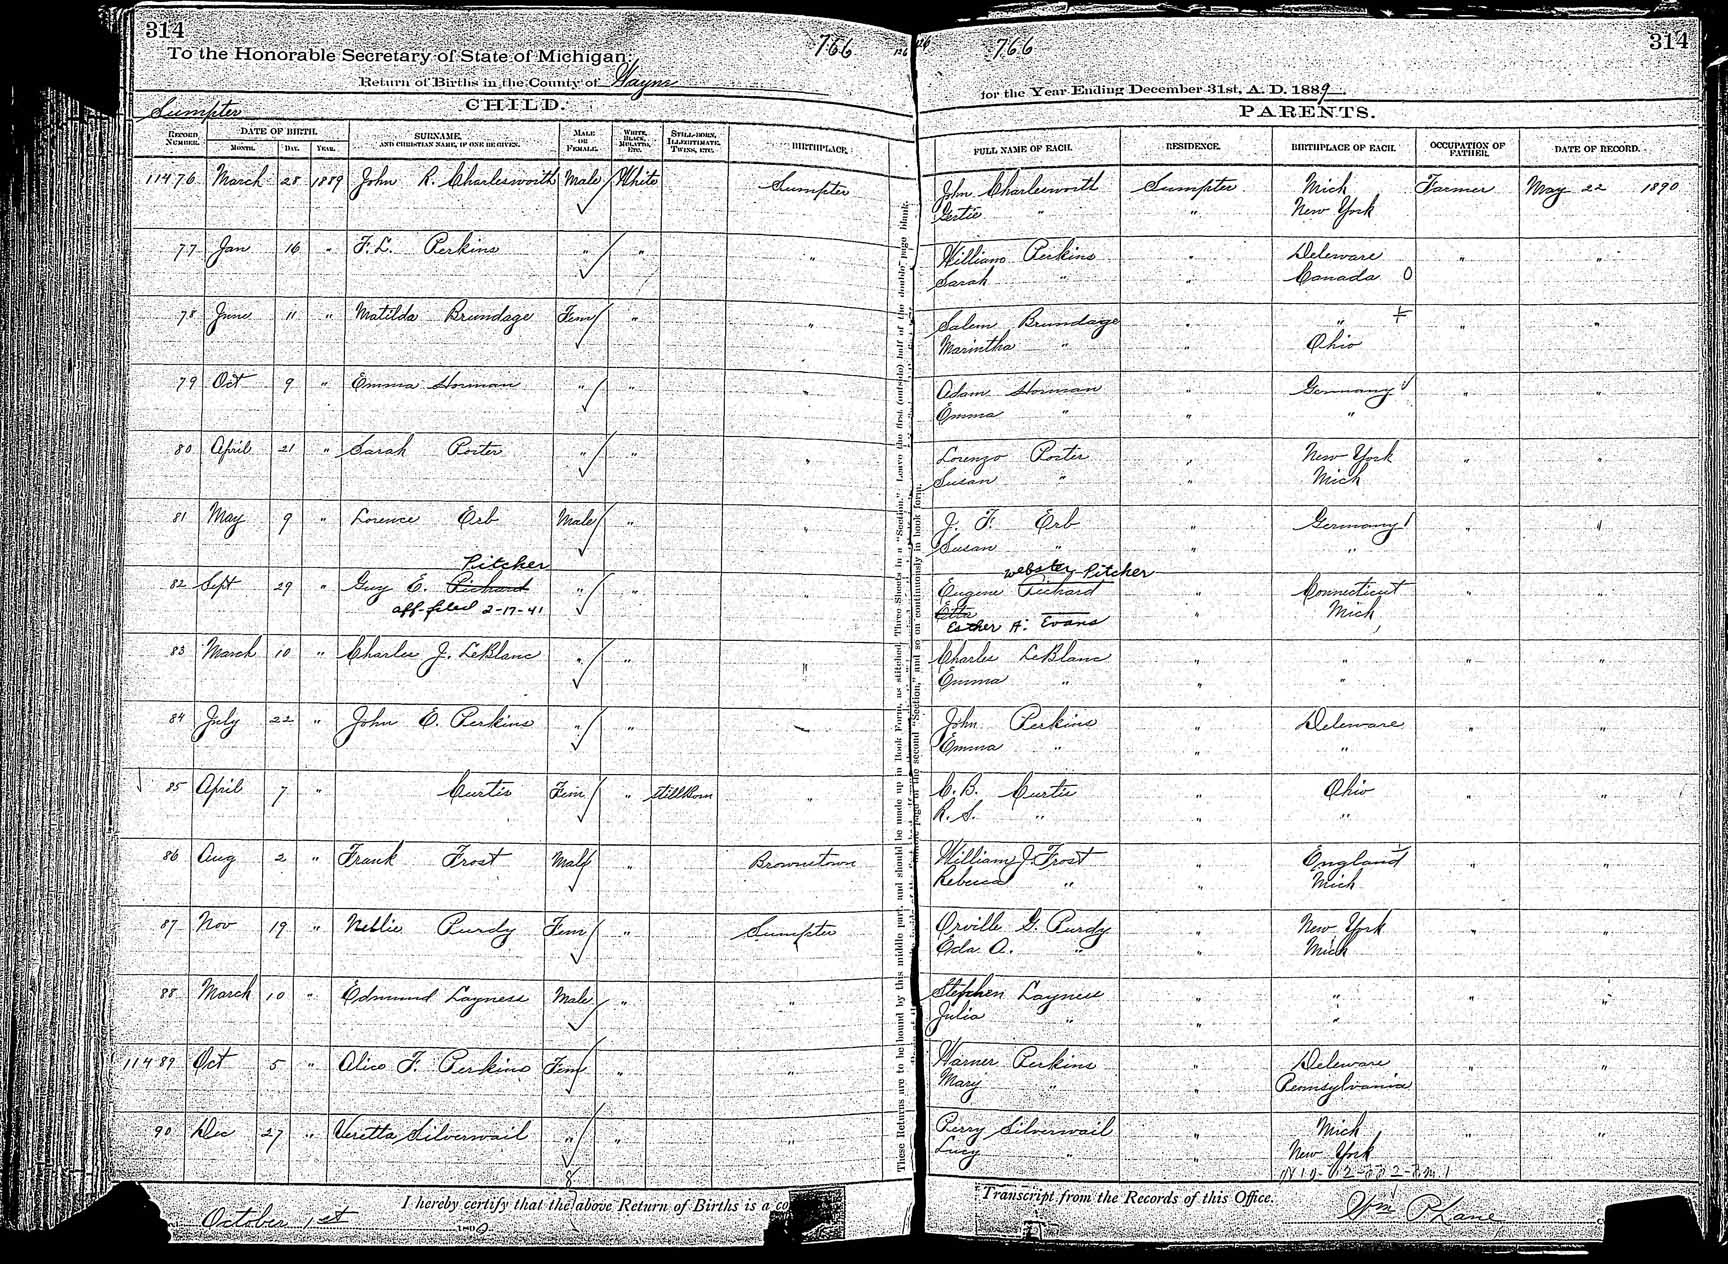 314
766
To the Honorable Secretary of State of Michigan:
Return of Births in the County of Wayne
Sumpter
CHILD.
RECORD NUMBER. DATE OF BIRTH. MONTH. DAY. YEAR. SURNAME, AND CHRISTIAN NAME, IF ONE BE GIVEN. MALE OR FEMALE. WHITE, BLACK, MULATTO, ETC. STILL-BORN, ILLEGITIMATE, TWINS, ETC. BIRTHPLACE.
11476 March 28 1889 John R. Charlesworth Male White Sumpter
77 Jan 16 " F. L. Perkins " " "
78 June 11 " Matilda Brundage Fem " "
79 Oct 9 " Emma Horman " " "
80 April 21 " Sarah Porter " "
81 May 9 " Lorence Erb Male " "
Pitcher
82 Sept 29 " Guy E. Richard " "
aff-filed 2-17-41
83 March 10 " Charles J. LeBlanc " " "
84 July 22 " John E. Perkins " "
85 April 7 " Curtis Fem " StillBorn "
86 Aug 2 " Frank Frost Male " Brownstown
87 Nov 19 " Nellie Purdy Fem " Sumpter
88 March 10 " Edmund Layness Male " "
11489 Oct 5 " Alice F. Perkins Fem " "
90 Dec 27 " Veretta Silverwail " " "
I hereby certify that the above Return of Births is a co
October 1st 1890
These Returns are to be bound by this middle part, and should be made up in Book Form, as stitched, Three Sheets in a "Section." Leave the first (outside) half of the double page blank.
second "Section," and so on continuously in book form.
766
314
for the Year Ending December 31st, A. D. 1889.
PARENTS.
FULL NAME OF EACH. RESIDENCE. BIRTHPLACE OF EACH. OCCUPATION OF FATHER. DATE OF RECORD.
John Charlesworth Sumpter Mich Farmer May 22 1890
Gertie " " New York
William Perkins " Deleware " "
Sarah " " Canada
Salem Brundage " " " "
Marintha " " Ohio
Adam Horman " Germany " "
Emma " " "
Lorenzo Porter " New York " "
Susan " " Mich
J. F. Erb " Germany " "
Susan " "
Webster Pitcher
Eugene Richard Connecticut " "
Etta " Mich
Esther A. Evans
Charles LeBlanc " " " "
Emma " " "
John Perkins " Deleware " "
Emma " " "
C. B. Curtis " Ohio " "
R. S. " " "
William J. Frost " England " "
Rebecca " " Mich
Orville G. Purdy " New York " "
Eda A. " " Mich
Stephen Layness " " " "
Julia " " "
Warner Perkins " Deleware " "
Mary " " Pennsylvania
Perry Silverwail " Mich " "
Lucy " " New York
Transcript from the Records of this Office.
Wm P Lane